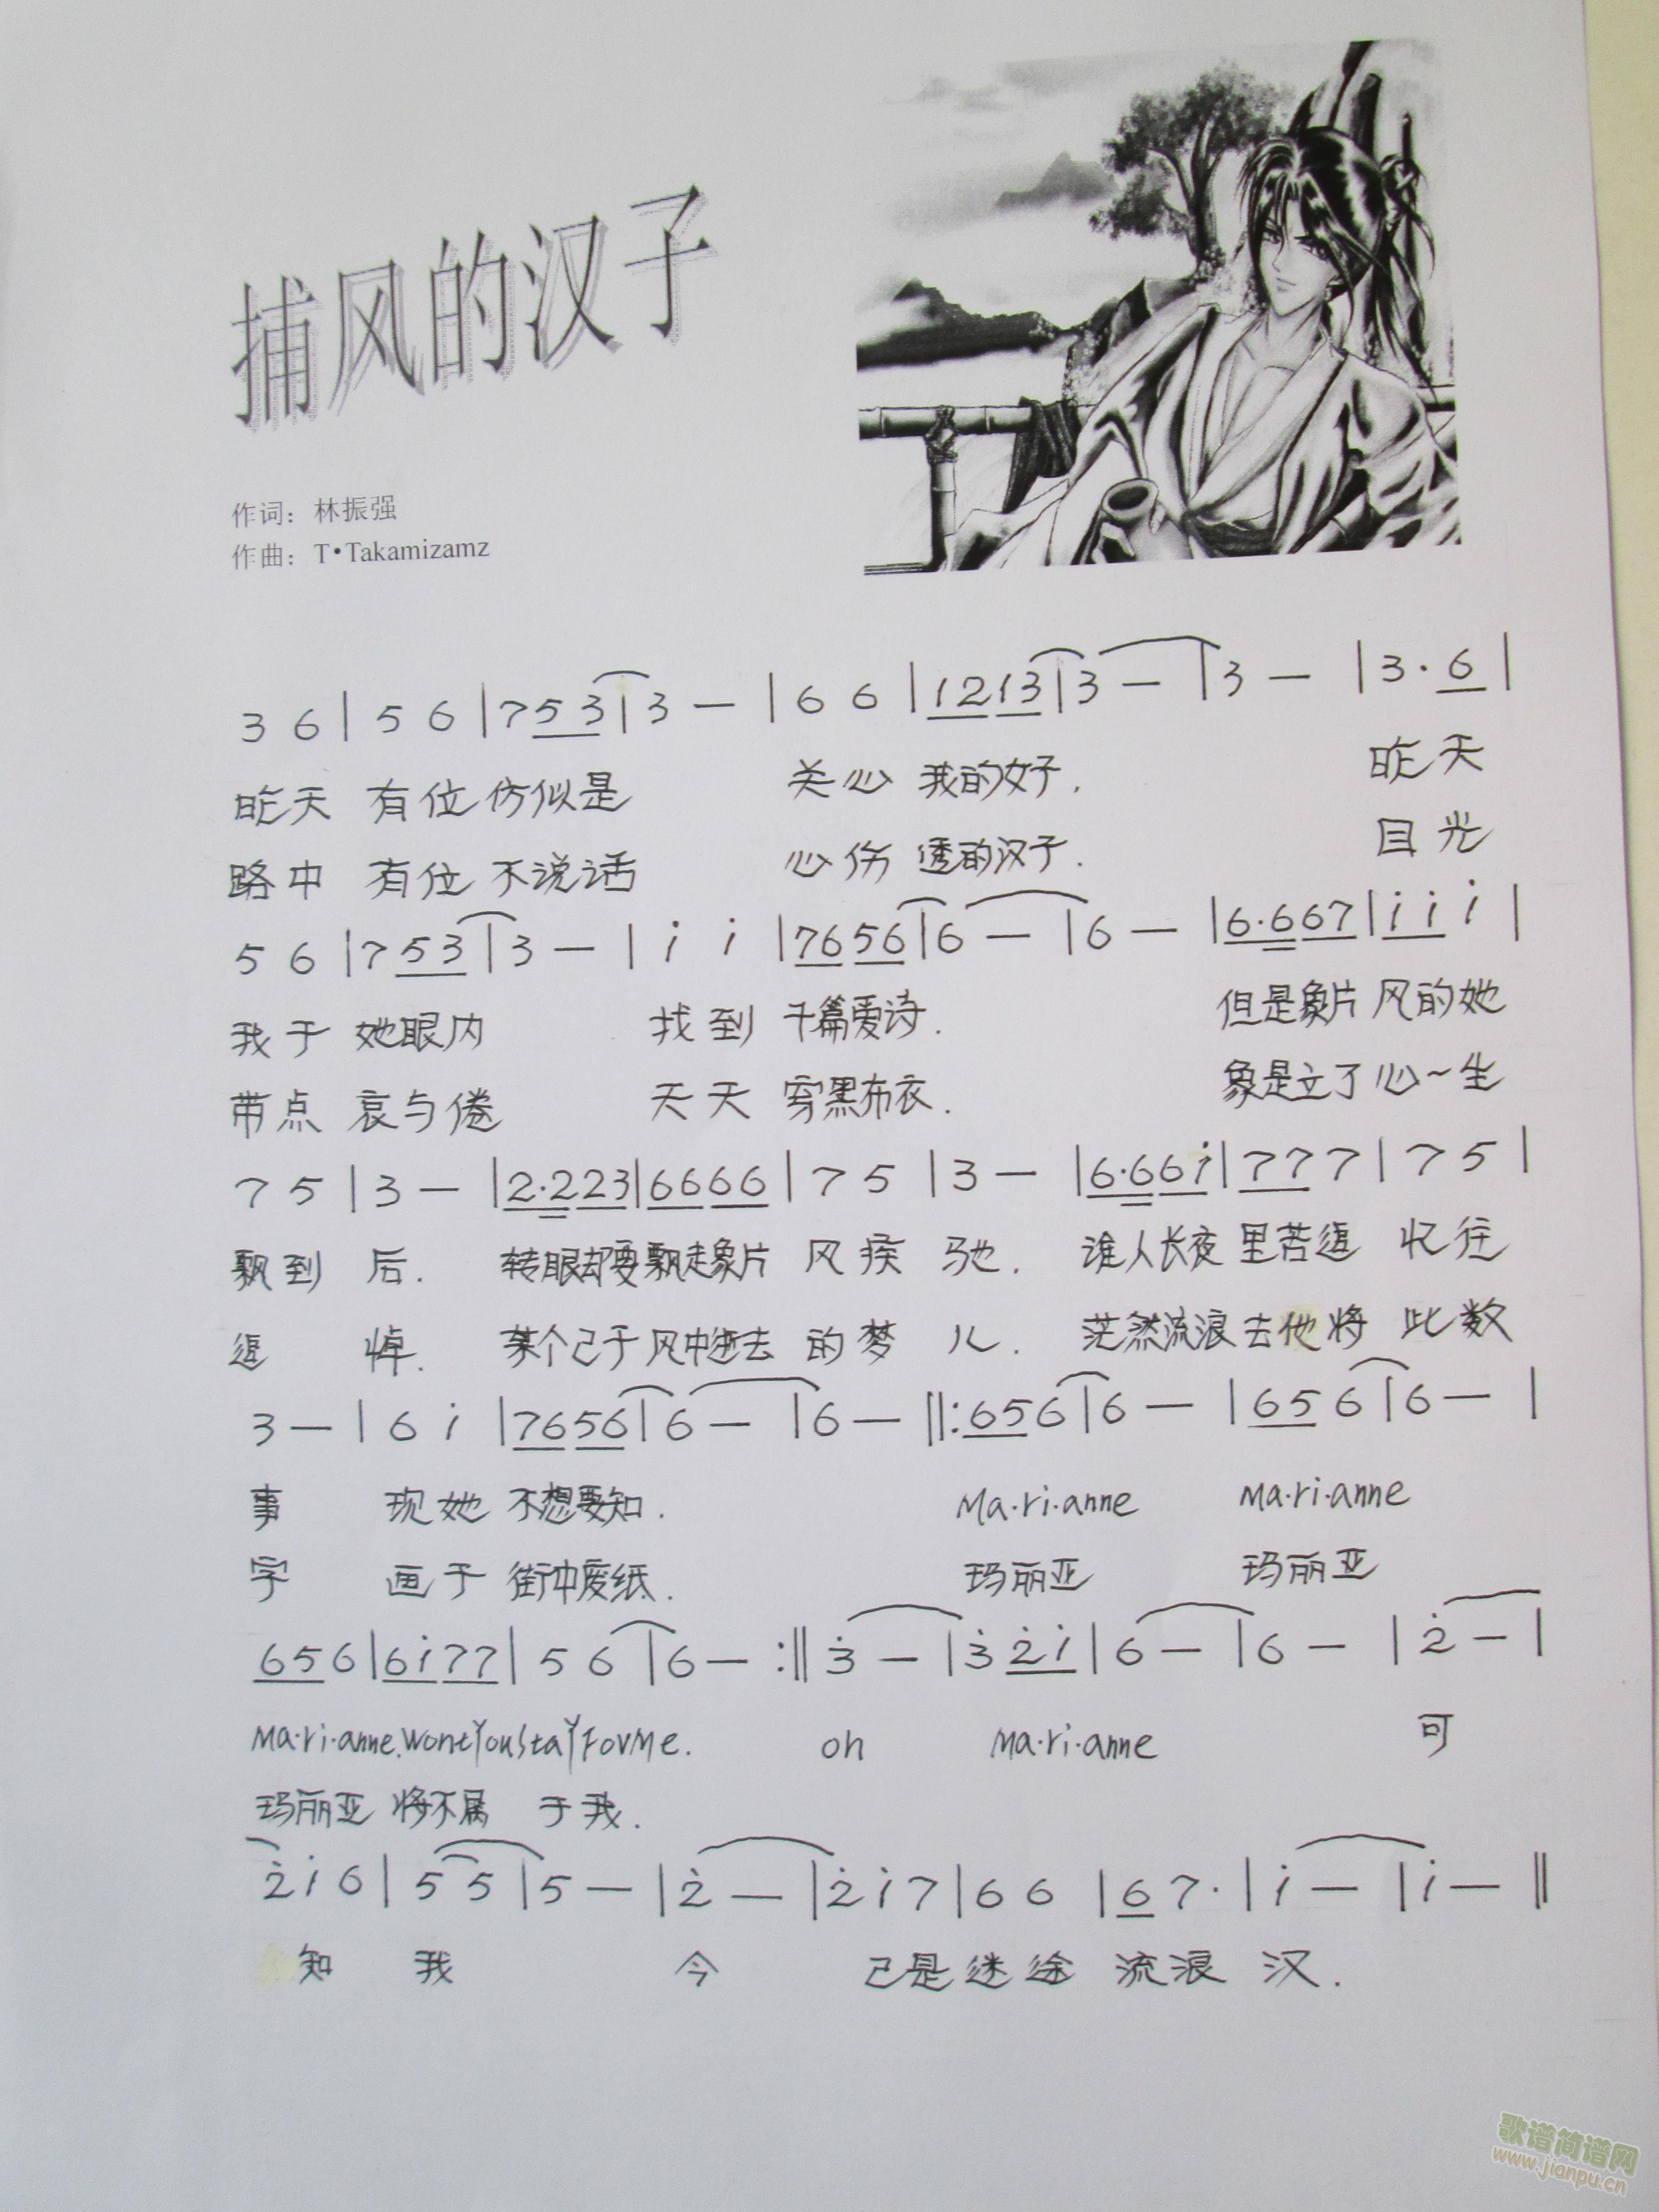 捕风的汉子
作词：林振强
作曲：T•Takamizamz
3 6 | 5 6 | 7 5 3 | 3 — | 6 6 | 1 2 1 3 | 3 — | 3 — | 3 · 6 |
昨天 有位仿似是 关心 我的女子. 昨天
路中 有位不说话 心伤 透的汉子. 目光
5 6 | 7 5 3 | 3 — | i i | 7 6 5 6 | 6 — | 6 — | 6·6 6 7 | i i i |
我于 她眼内 找到 千篇爱诗. 但是象片风的她
带点 哀与倦 天天 穿黑布衣. 象是立了心一生
7 5 | 3 — | 2·2 2 3 | 6 6 6 6 | 7 5 | 3 — | 6·6 6 i | 7 7 7 | 7 5 |
飘到 后. 转眼却要飘走象片 风疾 驰. 谁人长夜里苦追 忆往
追 悼. 某个己于风中逝去 的梦 儿. 茫然流浪去他将 此数
3 — | 6 i | 7 6 5 6 | 6 — | 6 — ‖: 6 5 6 | 6 — | 6 5 6 | 6 — |
事 现她 不想要知. Ma·ri·anne Ma·ri·anne
字 画于 街中废纸. 玛丽亚 玛丽亚
6 5 6 | 6 i 7 7 | 5 6 | 6 — :‖ 3̇ — | 3̇ 2̇ i | 6 — | 6 — | 2̇ — |
Ma·ri·anne.WontYouStaYForMe. oh Ma·ri·anne 可
玛丽亚 将不属 于我.
2̇ i 6 | 5 5 | 5 — | 2̇ — | 2̇ i 7 | 6 6 | 6 7· | i — | i — ‖
知 我 今 己是迷途 流浪 汉.
歌谱简谱网
www.jianpu.cn